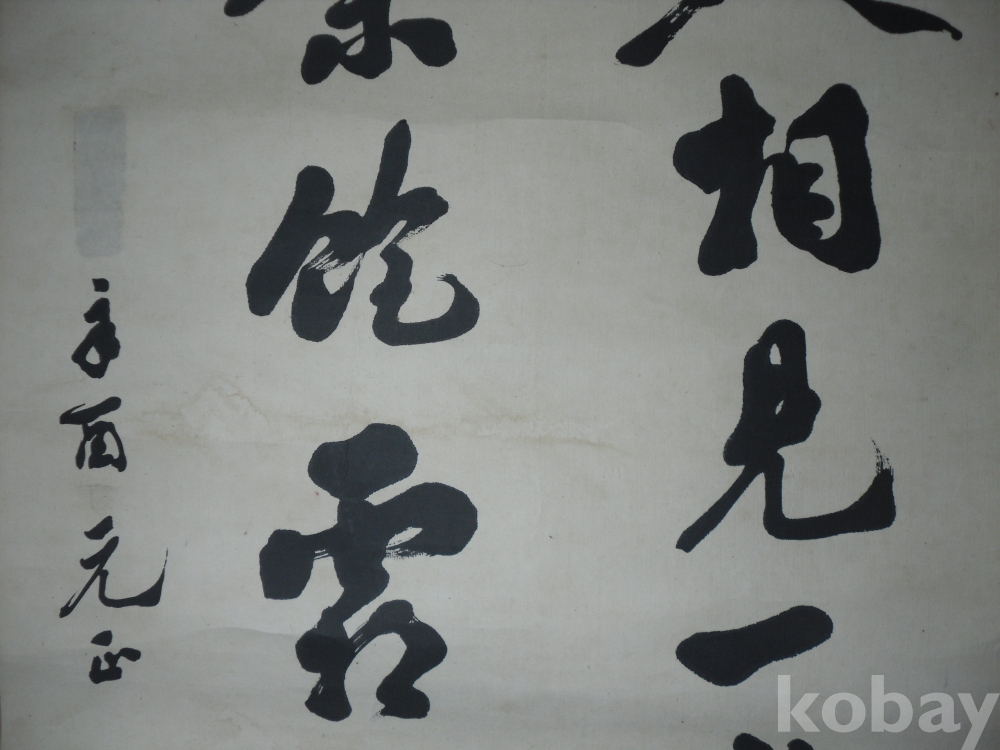 相見一
飽霜
辛酉元正
kobay